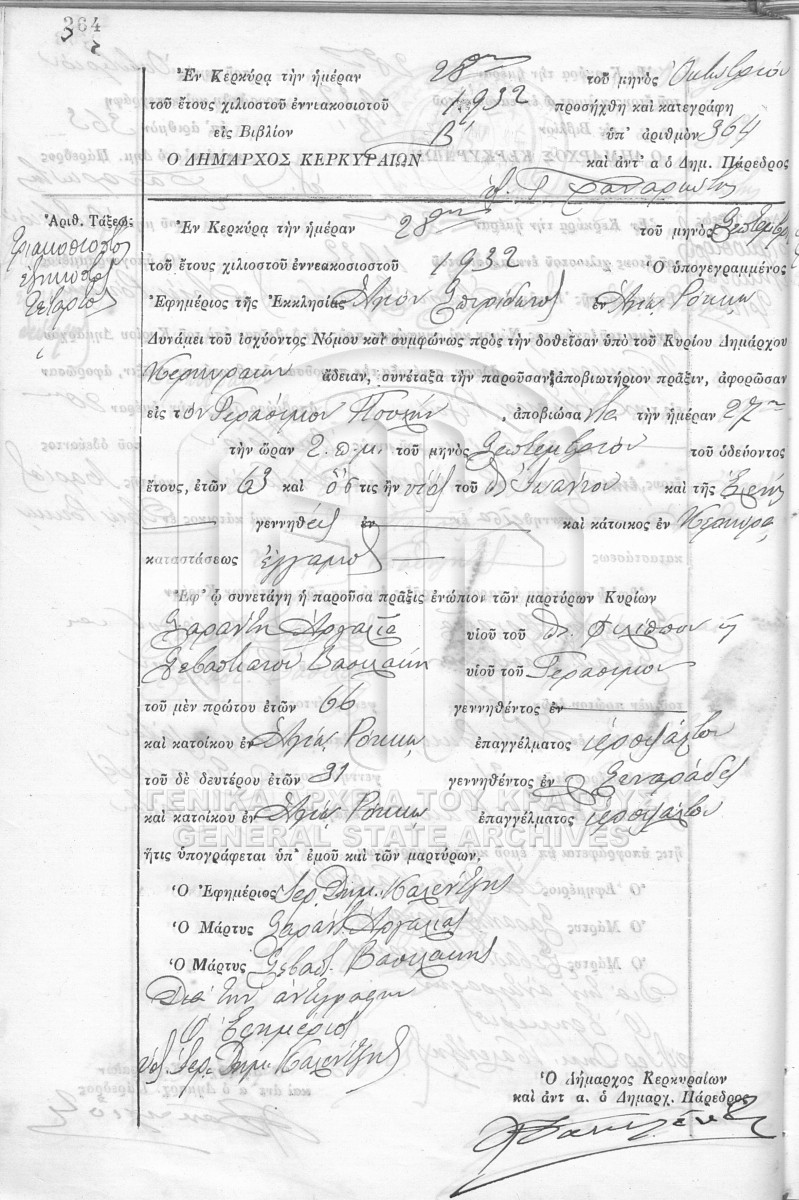 364
Ἐν Κερκύρᾳ τὴν ἡμέραν 28ην τοῦ μηνὸς Ὀκτωβρίου
τοῦ ἔτους χιλιοστοῦ ἐννιακοσιοτοῦ 1932 προσήχθη καὶ κατεγράφη
εἰς Βιβλίον Β' ὑπ' ἀριθμὸν 364
Ο ΔΗΜΑΡΧΟΣ ΚΕΡΚΥΡΑΙΩΝ καὶ ἀντ' α ὁ Δημ. Πάρεδρος
Ἀριθ. Τάξεως
Τριακοσιοστὸς
ἑξηκοστὸς
τέταρτος
Ἐν Κερκύρᾳ τὴν ἡμέραν 28ην τοῦ μηνὸς Σεπτεμβρ
τοῦ ἔτους χιλιοστοῦ ἐννεακοσιοστοῦ 1932 Ὁ ὑπογεγραμμένος
Ἐφημέριος τῆς Ἐκκλησίας Ἁγίου Σπυρίδωνος ἐν Ἁγίῳ Ρόκκῳ
Δυνάμει τοῦ ἰσχύοντος Νόμου καὶ συμφώνως πρὸς τὴν δοθεῖσαν ὑπὸ τοῦ Κυρίου Δημάρχου
Κερκυραίων ἄδειαν, συνέταξα τὴν παροῦσαν ἀποβιωτήριον πρᾶξιν, ἀφορῶσαν
εἰς τὸν Γεράσιμον ἀποβιώσαντα τὴν ἡμέραν 27ην
τὴν ὥραν 2 π.μ. τοῦ μηνὸς Σεπτεμβρίου τοῦ ὁδεύοντος
ἔτους, ἐτῶν 69 καὶ ὅστις ἦν υἱὸς τοῦ Ἰωάννου καὶ τῆς
γεννηθεὶς ἐν καὶ κάτοικος ἐν Κέρκυρᾳ
καταστάσεως ἔγγαμος
Ἐφ' ᾧ συνετάγη ἡ παροῦσα πρᾶξις ἐνώπιον τῶν μαρτύρων Κυρίων
Σαράντη Ἀργαλιᾶ υἱοῦ τοῦ Φιλίππου ἢ
Σεβαστιανοῦ Βασιλάκη υἱοῦ τοῦ Γερασίμου
τοῦ μὲν πρώτου ἐτῶν 66 γεννηθέντος ἐν
καὶ κατοίκου ἐν Ἁγίῳ Ρόκκῳ ἐπαγγέλματος ἱεροψάλτου
τοῦ δὲ δευτέρου ἐτῶν 31 γεννηθέντος ἐν Σιναράδες
καὶ κατοίκου ἐν Ἁγίῳ Ρόκκῳ ἐπαγγέλματος ἱεροψάλτου
ΓΕΝΙΚΑ ΑΡΧΕΙΑ ΤΟΥ ΚΡΑΤΟΥΣ
GENERAL STATE ARCHIVES
ἥτις ὑπογράφεται ὑπ' ἐμοῦ καὶ τῶν μαρτύρων,
Ὁ Ἐφημέριος Ἱερ. Δημ. Καλεντζῆς
Ὁ Μάρτυς Σαράντ. Ἀργαλιᾶς
Ὁ Μάρτυς Σεβαστ. Βασιλάκης
Διὰ τὴν ἀντιγραφὴν
Ὁ Ἐφημέριος
Ἱερ. Δημ. Καλεντζῆς
Ὁ Δήμαρχος Κερκυραίων
καὶ ἀντ α. ὁ Δημαρχ. Πάρεδρος